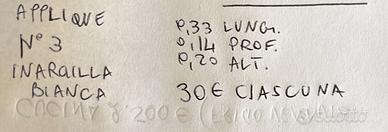 APPLIQUE
N° 3
INARGILLA
BIANCA
0,33 LUNG.
0,14 PROF.
0,20 ALT.
30€ CIASCUNA
CUCINA 2.200€